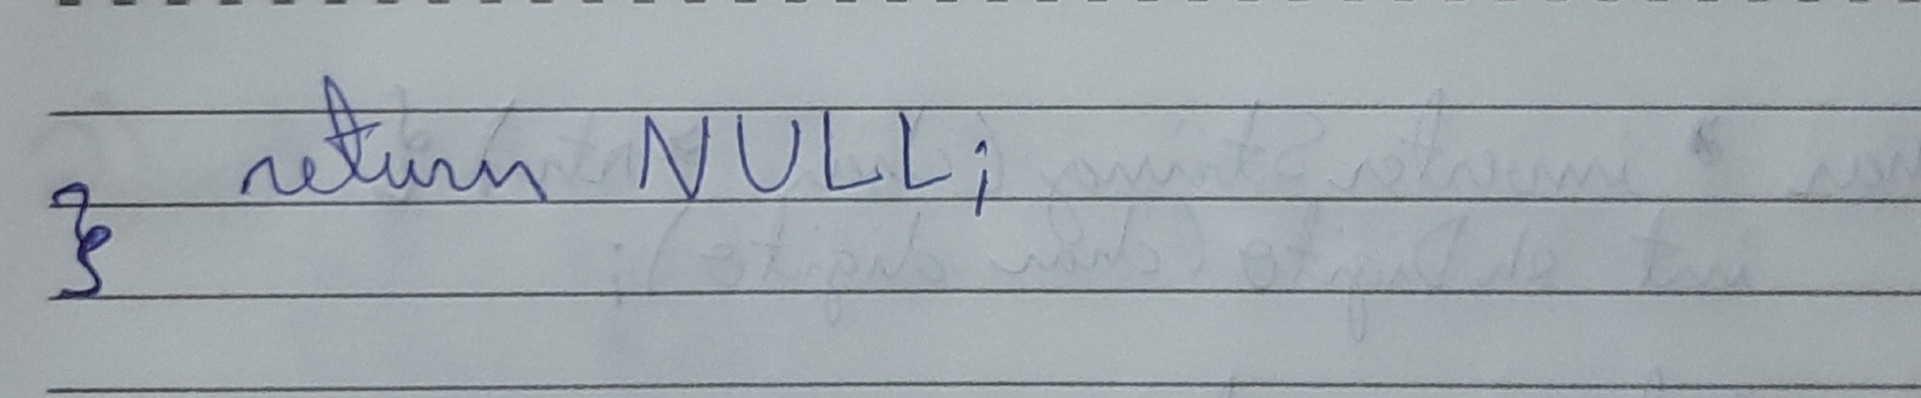 return NULL;
}